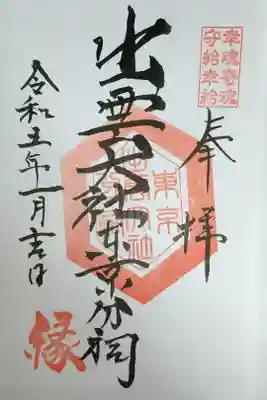 幸魂奇魂
守給幸給
奉拝
出雲大社東京分祠
東京
令和五年一月吉日
縁